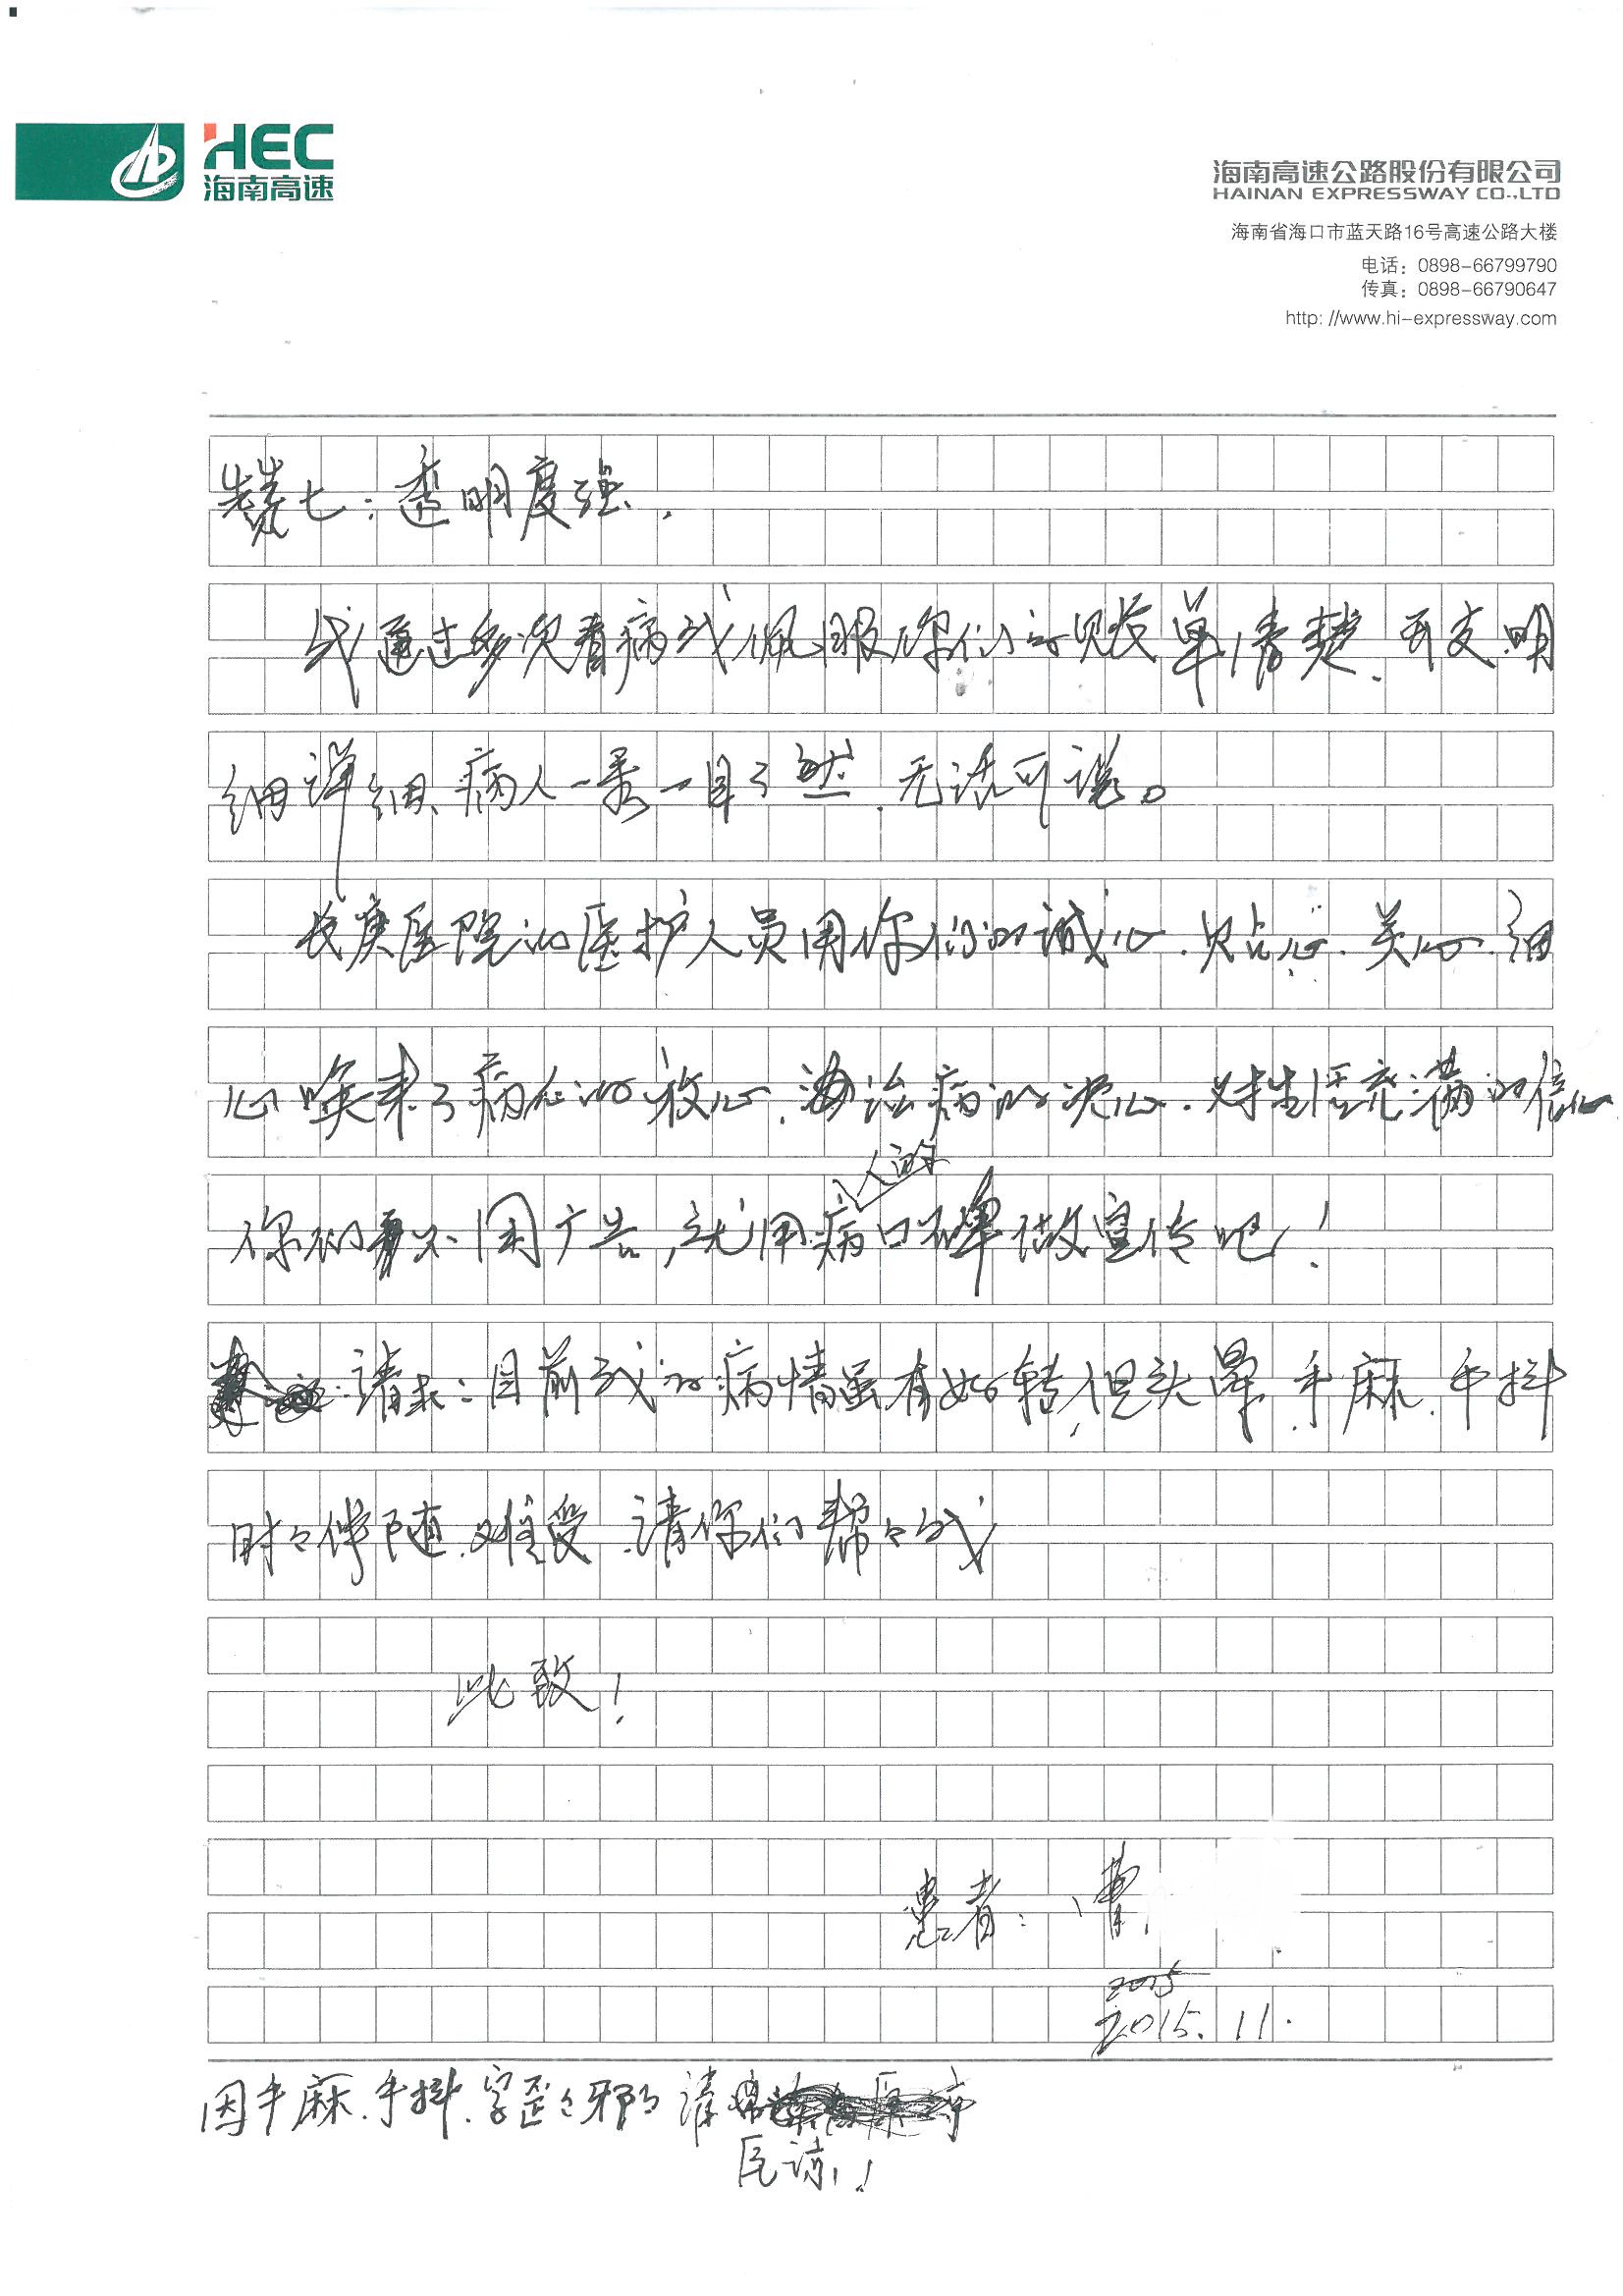 HEC
海南高速
海南高速公路股份有限公司
HAINAN EXPRESSWAY CO.,LTD
海南省海口市蓝天路16号高速公路大楼
电话：0898-66799790
传真：0898-66790647
http: //www.hi-expressway.com
赞七：透明度强.
我通过多次看病我佩服你们的账单清楚、开支明
细详细、病人一看一目了然、无话可说。
长庚医院的医护人员用你们的诚心、贴心、关心、细
心唤来了病人的放心、治病的决心、对生活充满的信心
你们不用广告，就用病人的口碑做宣传吧！
请求：目前我的病情虽有好转，但头晕、手麻、手抖
时々伴随、难受、请你们帮々我
此致！
患者：曹
2015
2015.11.
因手麻、手抖、字歪々邪々请
原谅！！